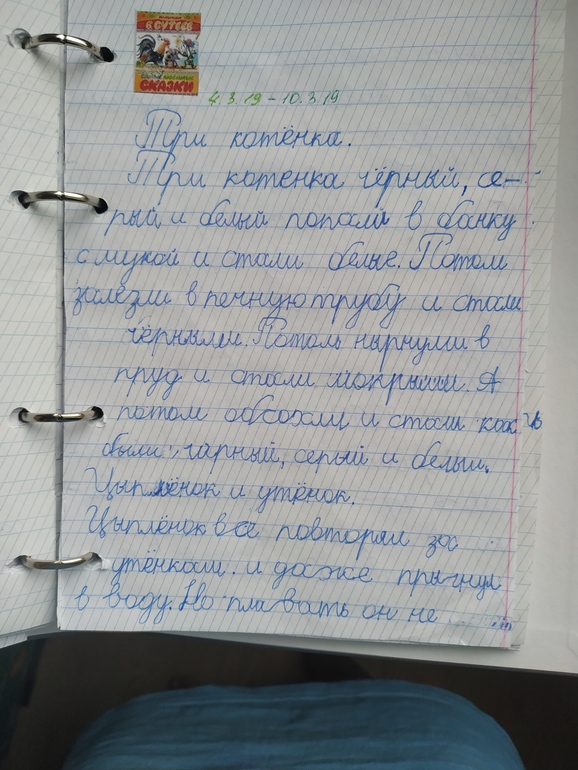 В. СУТЕЕВ
СКАЗКИ
4.3.19-10.3.19
Три котёнка.
Три котенка чёрный, се-
рый и белый попали в банку
с мукой и стали белые. Потом
залезли в печную трубу и стали
чёрными. Потом нырнули в
пруд и стали мокрыми. А
потом обсохли и стали как
были: чарный, серый и белый.
Цыплёнок и утёнок.
Цыплёнок всё повторял за
утёнкам и даже прыгнул
в воду. Но плавать он не